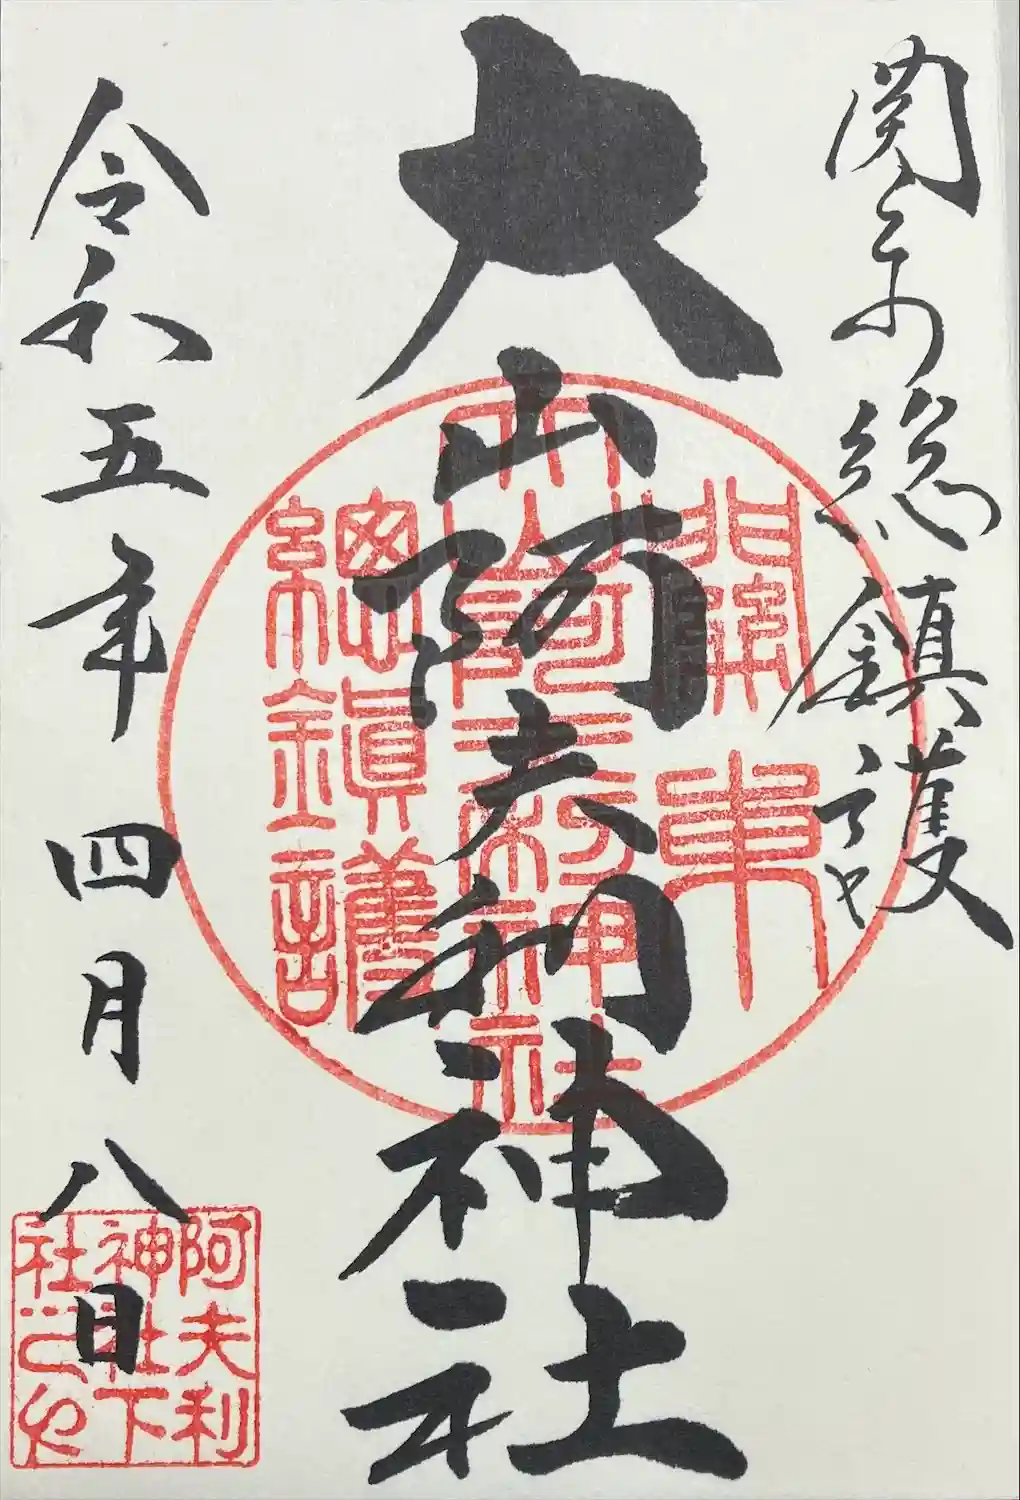 関東総鎮護
大山阿夫利神社
令和五年四月八日
關東
大山阿夫利神社
總鎮護
阿夫利
神社下
社之也